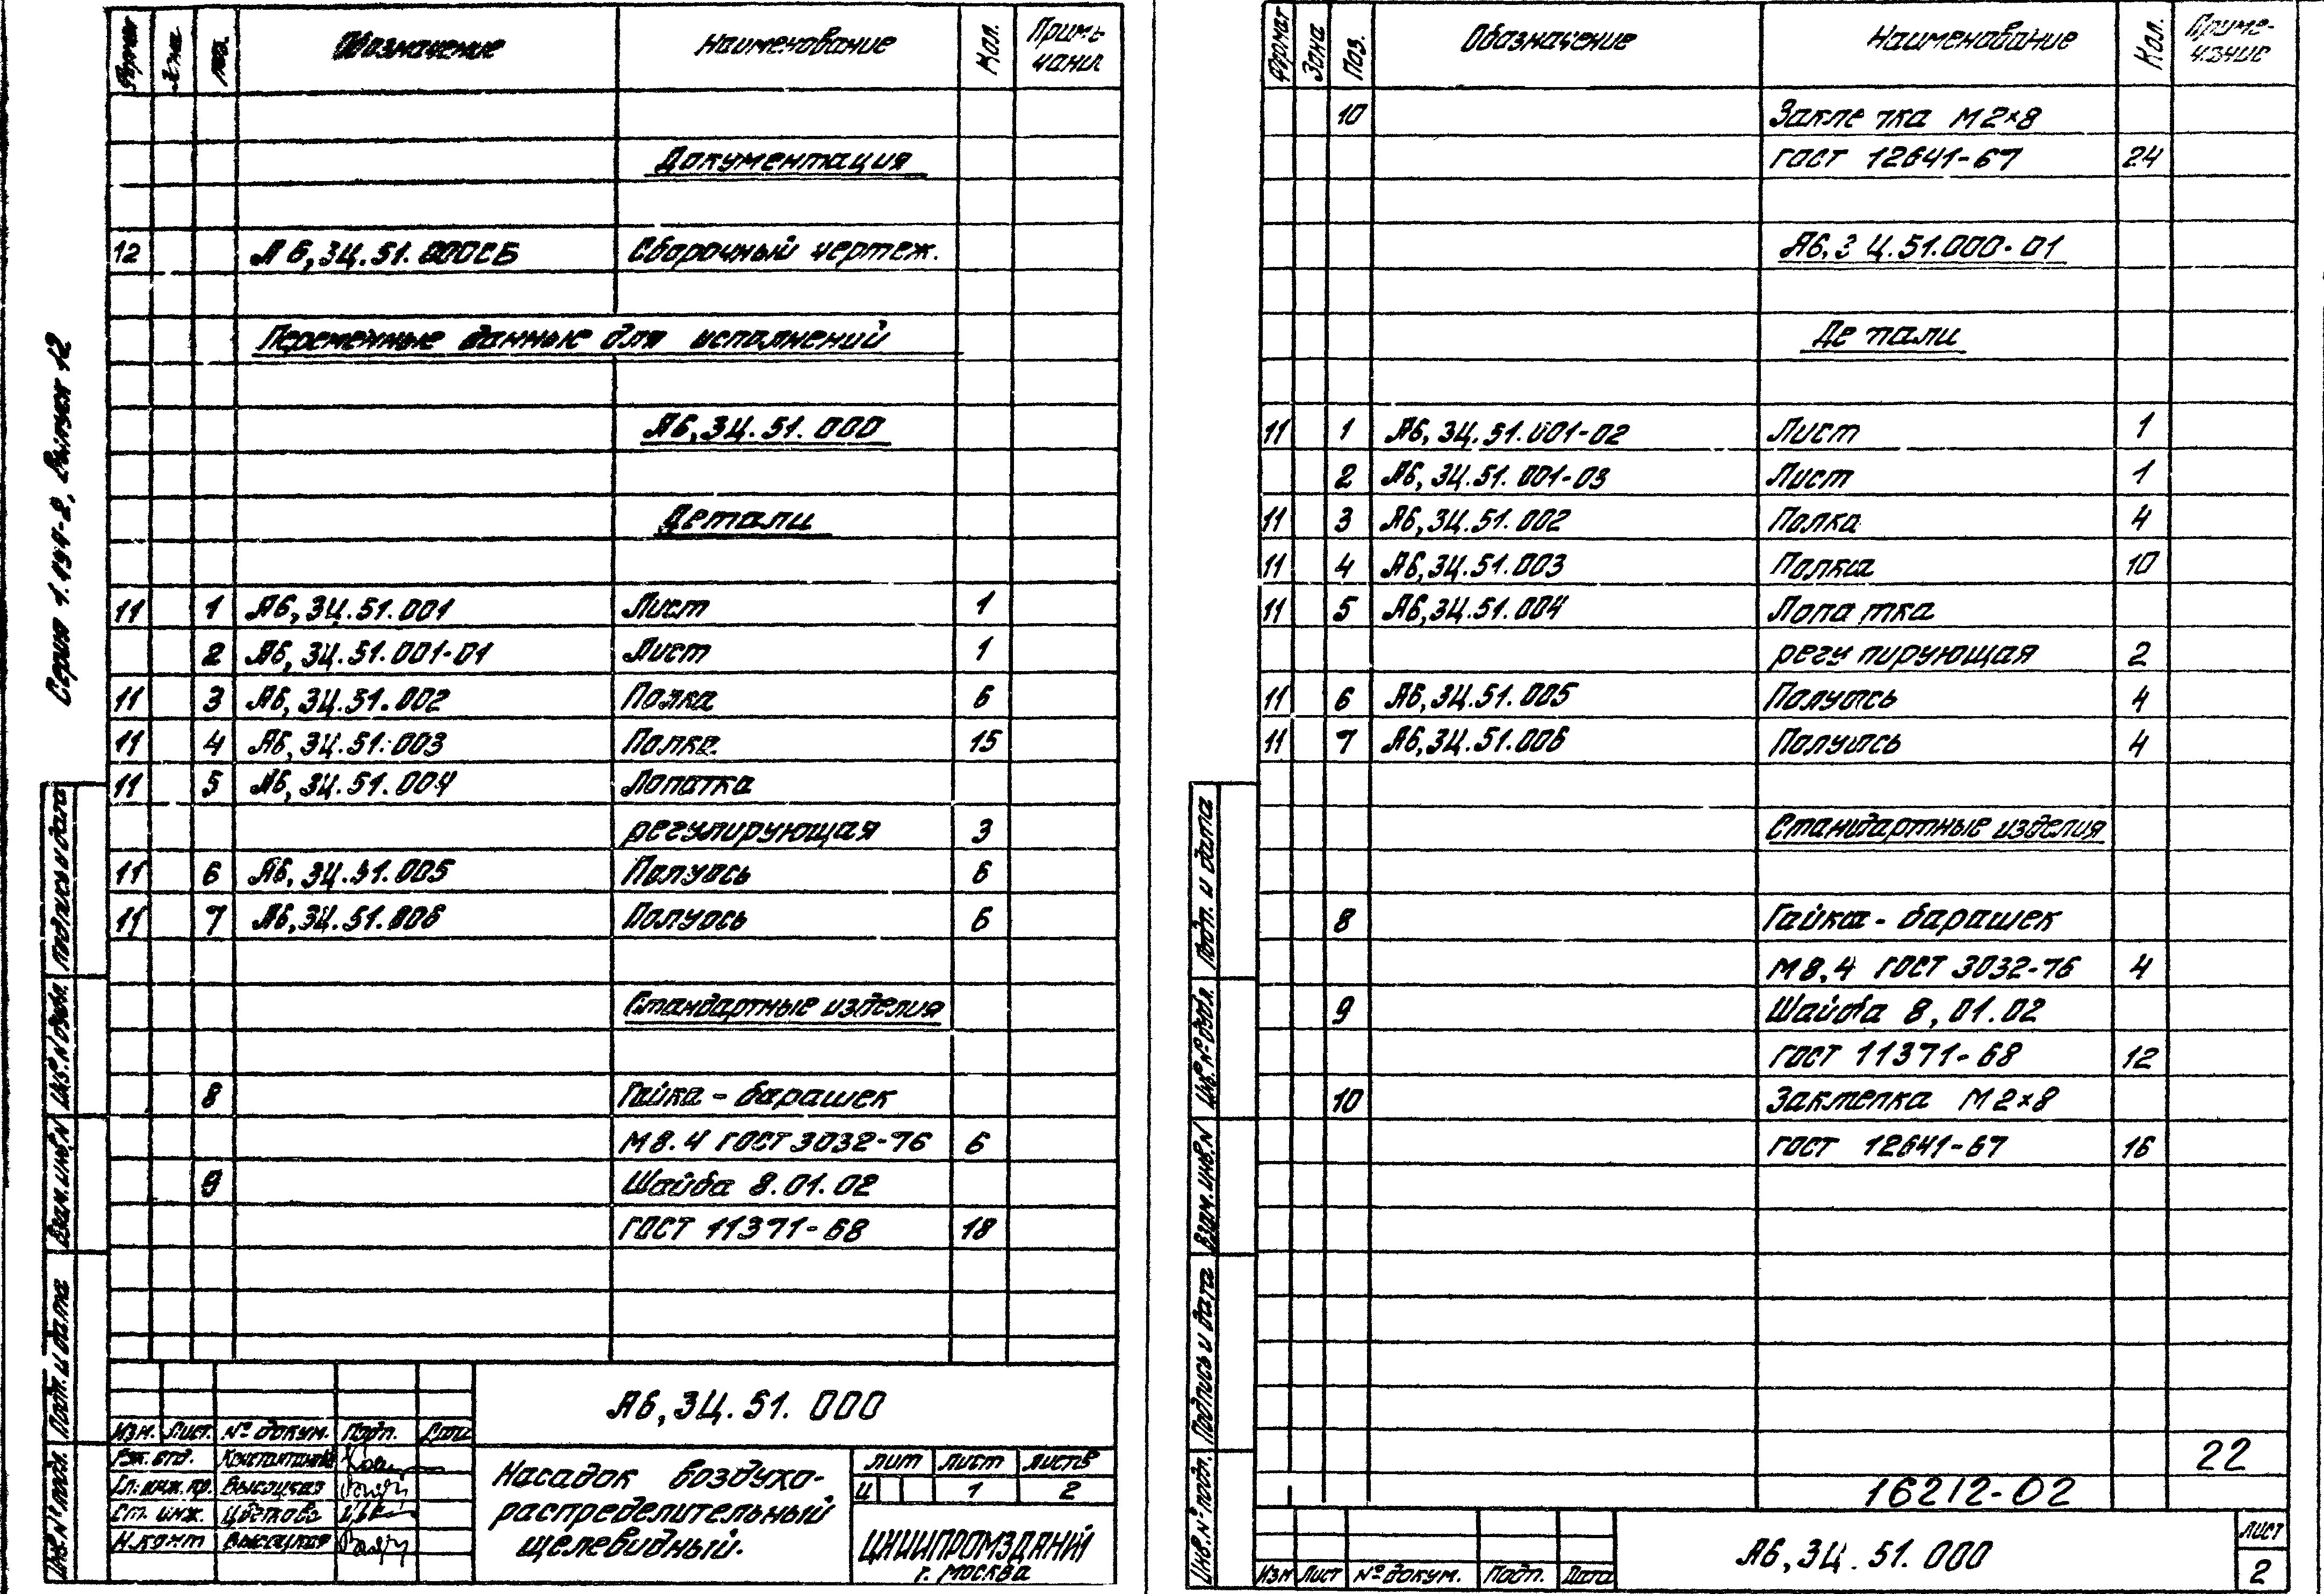 Серия 1.494-2, Выпуск 12
Формат Зона Поз. Обозначение Наименование Кол. Примечание
Документация
12 А6,3Ц.51.000СБ Сборочный чертеж.
Переменные данные для исполнений
А6,3Ц.51.000
Детали
11 1 А6,3Ц.51.001 Лист 1
2 А6,3Ц.51.001-01 Лист 1
11 3 А6,3Ц.51.002 Полка 6
11 4 А6,3Ц.51.003 Полка 15
11 5 А6,3Ц.51.004 Лопатка
регулирующая 3
11 6 А6,3Ц.51.005 Полуось 6
11 7 А6,3Ц.51.006 Полуось 6
Стандартные изделия
8 Гайка - барашек
М8.4 ГОСТ 3032-76 6
9 Шайба 8.01.02
ГОСТ 11371-68 18
Подпись и дата
Инв. № дубл.
Взам. инв. №
Подп. и дата
Инв. № подл.
А6,3Ц.51.000
Изм. Лист № докум. Подп. Дата
Рук. отд.
Гл. инж. пр. Высоцкая
Ст. инж. Цветкова
Н. конт Высоцкая
Насадок воздухо-
распределительный
щелевидный.
лит лист листов
Ц 1 2
ЦНИИПРОМЗДАНИЙ
г. Москва
Формат Зона Поз. Обозначение Наименование Кол. Примечание
10 Заклепка М2×8
ГОСТ 12641-67 24
А6,3Ц.51.000-01
Детали
11 1 А6,3Ц.51.001-02 Лист 1
2 А6,3Ц.51.001-03 Лист 1
11 3 А6,3Ц.51.002 Полка 4
11 4 А6,3Ц.51.003 Полка 10
11 5 А6,3Ц.51.004 Лопатка
регулирующая 2
11 6 А6,3Ц.51.005 Полуось 4
11 7 А6,3Ц.51.006 Полуось 4
Стандартные изделия
8 Гайка - барашек
М8.4 ГОСТ 3032-76 4
9 Шайба 8,01.02
ГОСТ 11371-68 12
10 Заклепка М2×8
ГОСТ 12641-67 16
Подп. и дата
Инв. № дубл.
Взам. инв. №
Подпись и дата
Инв. № подл.
22
16212-02
Изм Лист № докум. Подп. Дата
А6,3Ц.51.000
Лист
2